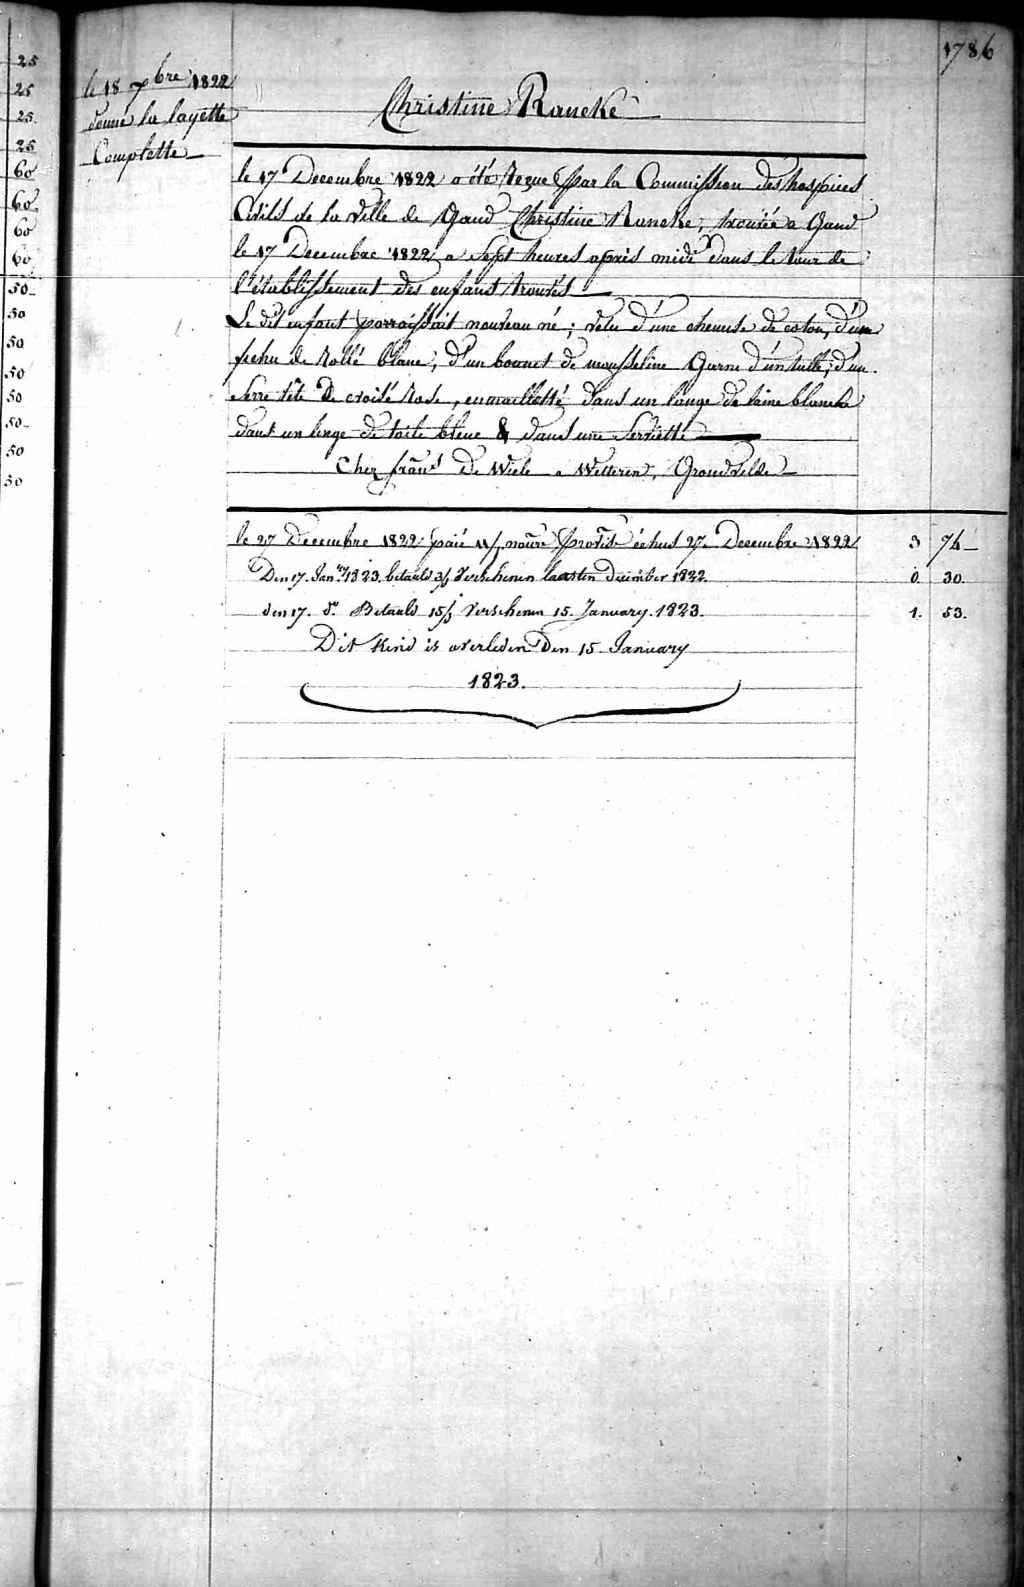 1786
25
25
25
25
60
60
60
60
50
50
50
50
50
50
50
50
le 18 xbre 1822
donné la layette
Complette
Christine Raneke
le 17 Decembre 1822 a été Reçue par la Commission des hospices
Civils de la ville de Gand Christine Raneke, trouvée a Gand
le 17 Decembre 1822 a Sept heures après midi dans le tour de
l'établissement des enfants trouvés
Le dit enfant parraissait nouveau né ; vetu d'une chemise de coton, d'un
fichu de blanc, d'un bonnet de mousseline Garni d'un tulle, d'un
Serre tête De croisé Rose, emmaillotté dans un lange de laine blanche
dans un linge de toile bleue & dans une Serviette
Chez frans De Wiele a Wetteren,
le 27 Decembre 1822 paié échus 27 Decembre 1822 3 74
Den 17. Jan.y 1823 betaald Verschenen laasten December 1822 0. 30.
den 17. do Betaald 15/ Verschenen 15. January 1823. 1. 53.
Dit Kind is overleden Den 15 January
1823.